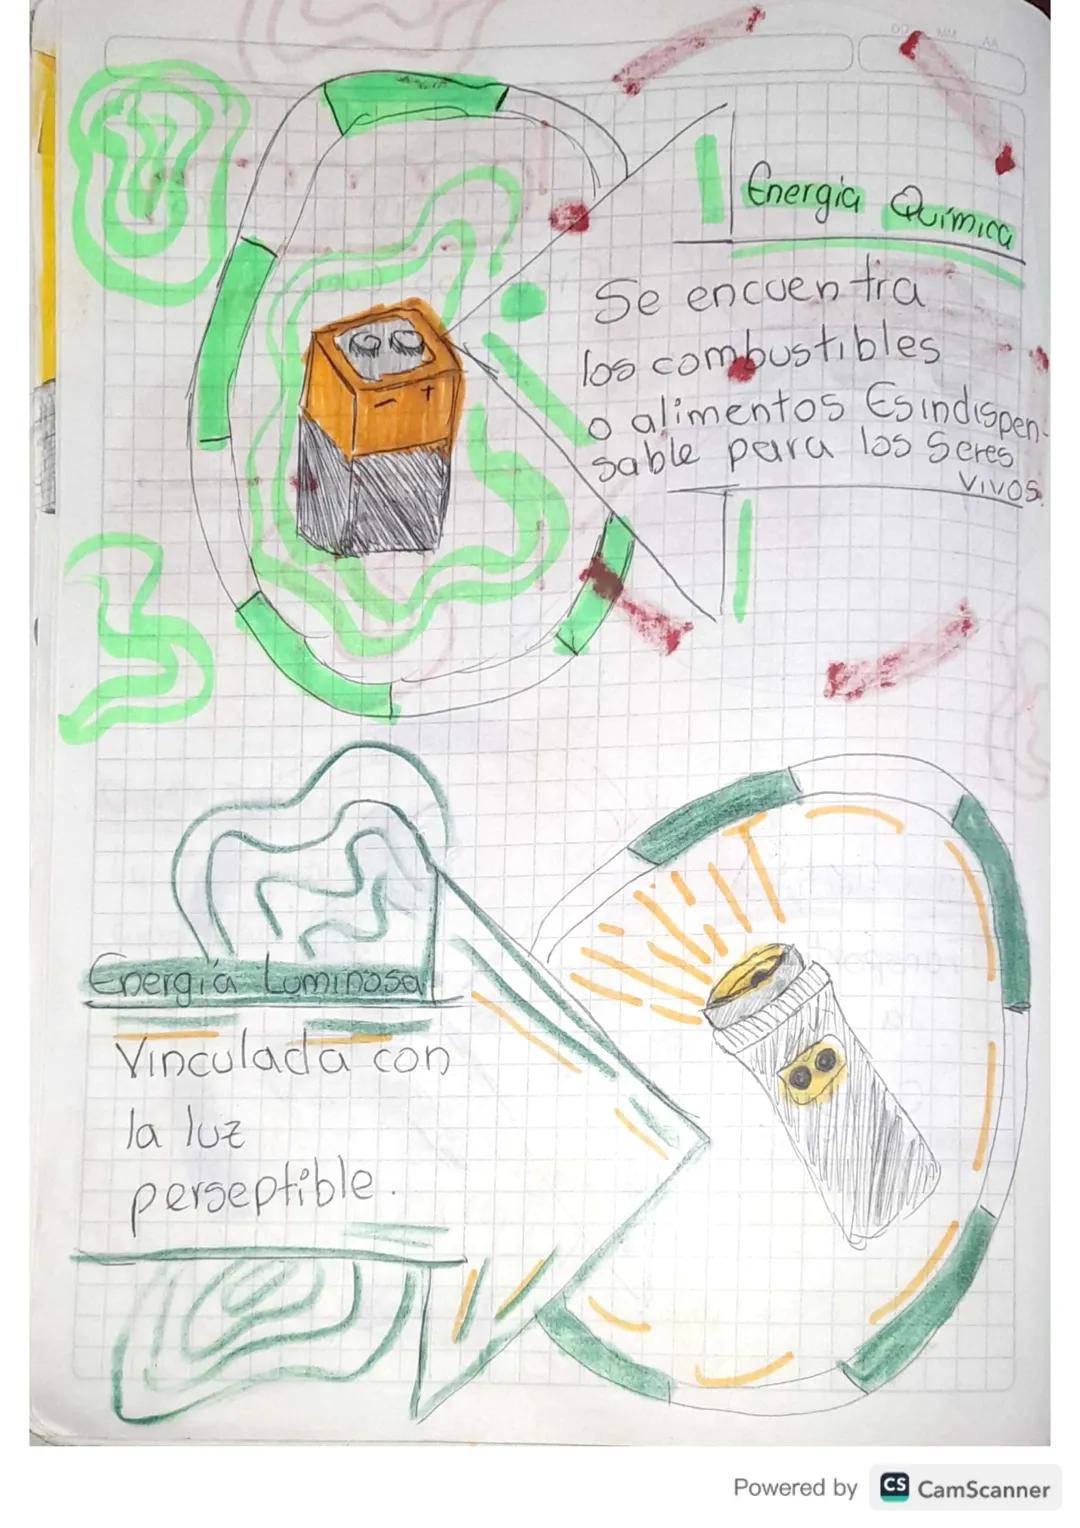 DD MM AA
Energia Quimica
Se encuentra
los combustibles
o alimentos Es indispen-
sable para los Seres
vivos.
- +
Energía Luminosa
Vinculada con
la luz
perseptible.
Powered by CS CamScanner